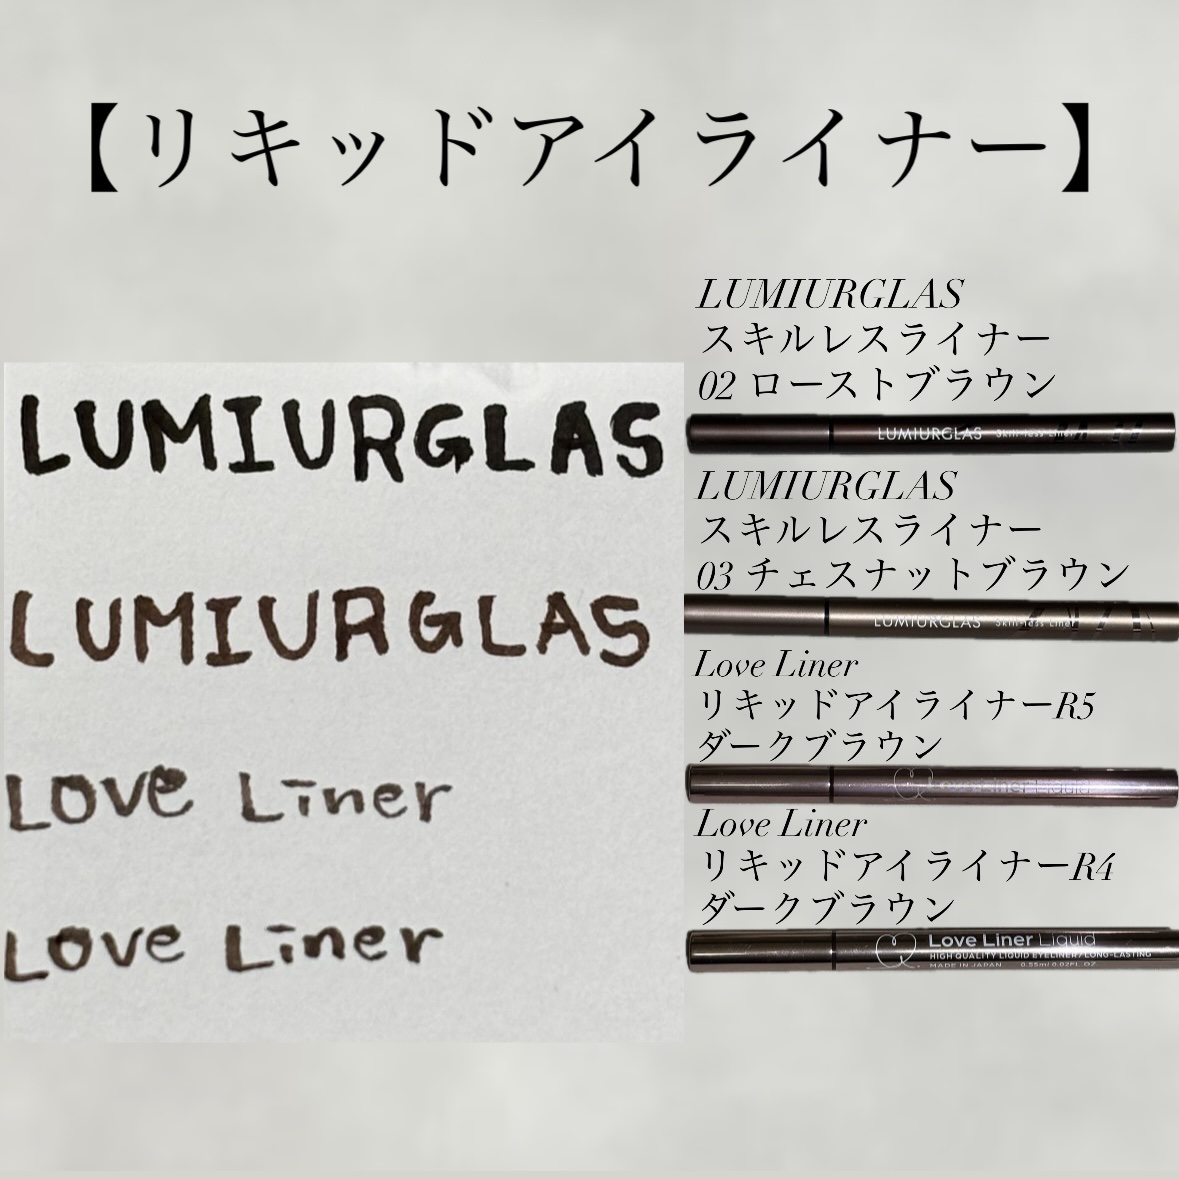 【リキッドアイライナー】
LUMIURGLAS
LUMIURGLAS
Love Liner
Love Liner
LUMIURGLAS
スキルレスライナー
02 ローストブラウン
LUMIURGLAS Skill-less Liner
LUMIURGLAS
スキルレスライナー
03 チェスナットブラウン
LUMIURGLAS Skill-less Liner
Love Liner
リキッドアイライナーR5
ダークブラウン
Love Liner Liquid
Love Liner
リキッドアイライナーR4
ダークブラウン
Love Liner Liquid
HIGH QUALITY LIQUID EYELINER/LONG-LASTING
MADE IN JAPAN 0.55ml 0.02FL. OZ